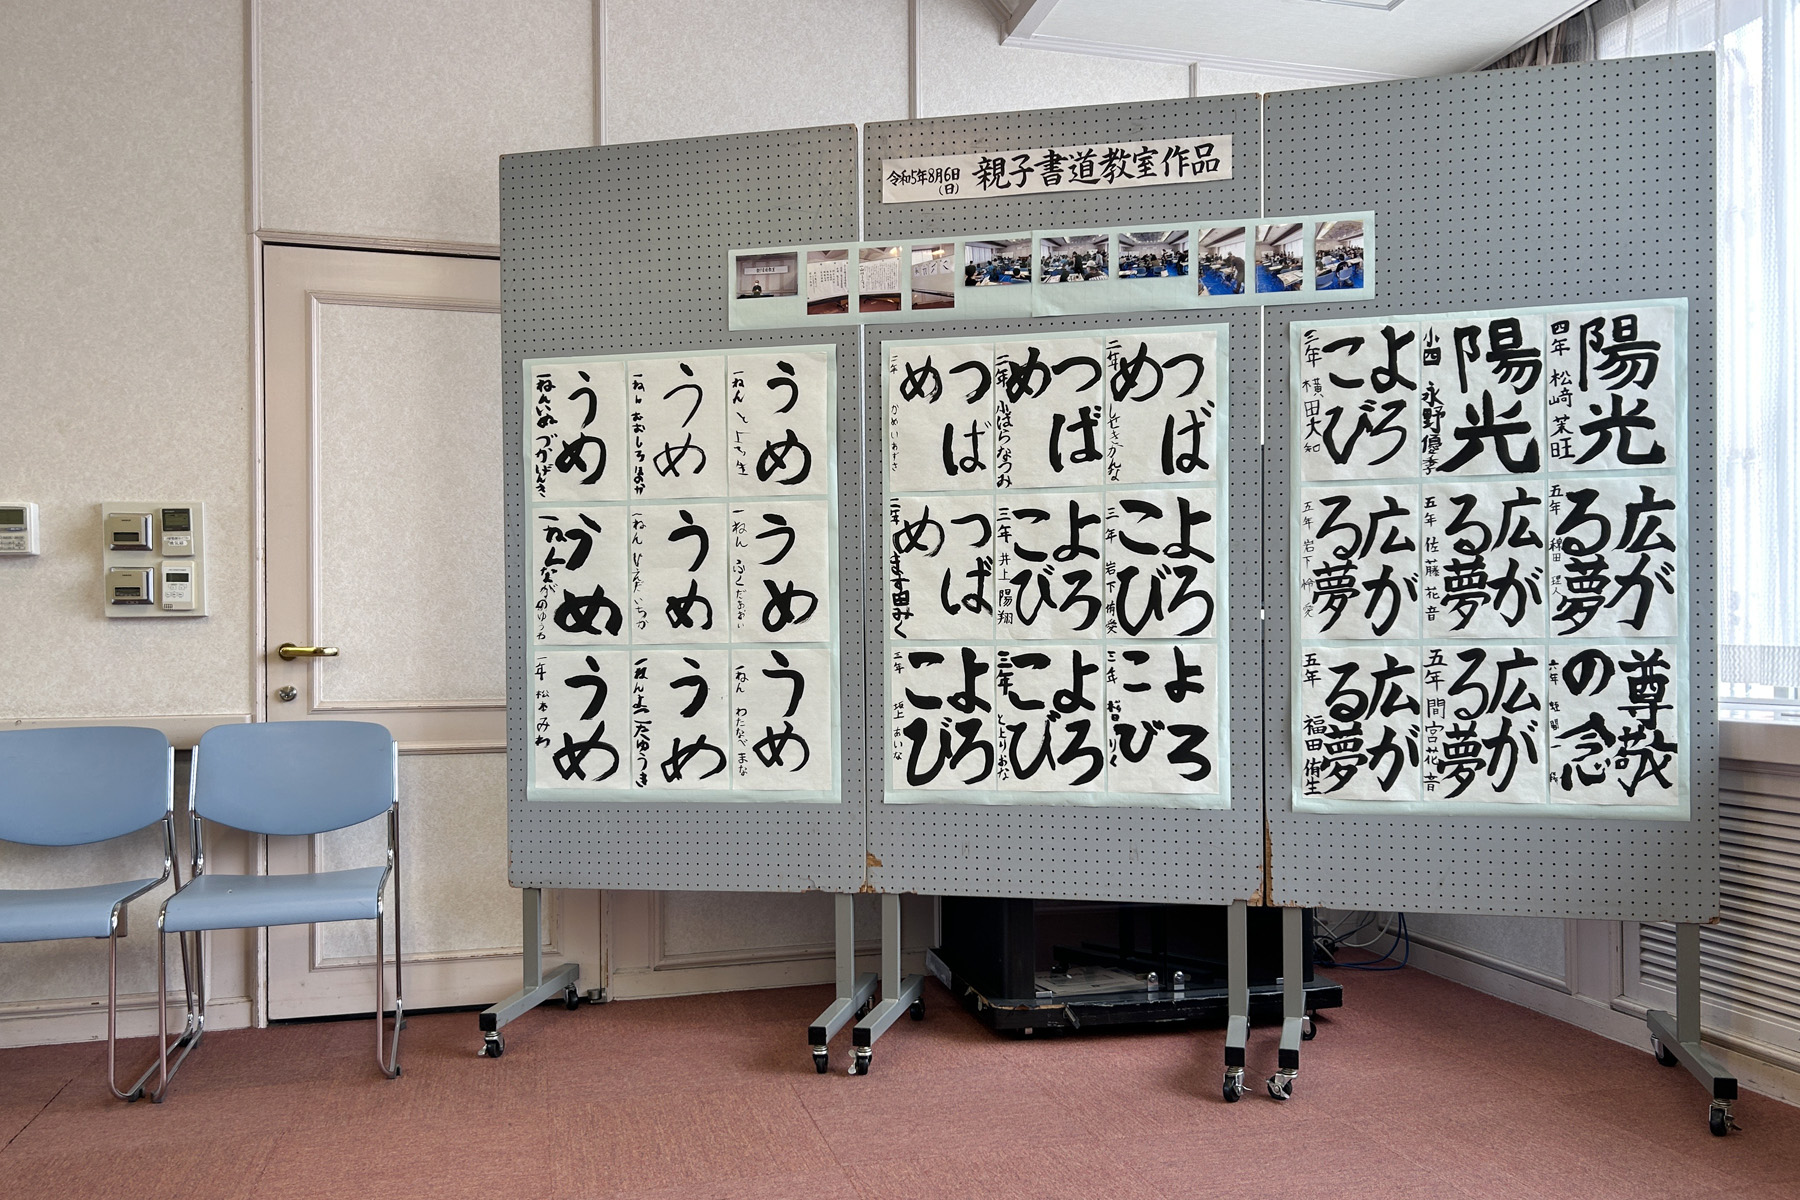 令和5年8月6日
(日)
親子書道教室作品
うめ
一ねん
うめ
一ねん
うめ
一ねんいぬづかげんき
うめ
一ねん ふくだあおい
うめ
一ねん ひえだいちか
うめ
一ねんながのゆうわ
うめ
一ねん わたなべまな
うめ
うめ
一年 松本みわ
つばめ
二年
つばめ
二年 小ばらなつみ
つばめ
二年 かめいあずさ
よろこび
三年 岩下侑愛
よろこび
三年 井上陽翔
つばめ
二年 ます田みく
よろこび
三年
よろこび
三年
よろこび
三年 坂上あいな
陽光
四年 松﨑茉旺
陽光
小四 永野優季
よろこび
三年 横田大知
広がる夢
五年
広がる夢
五年 佐藤花音
広がる夢
五年 岩下怜愛
尊敬の念
六年
広がる夢
五年 間宮花音
広がる夢
五年 福田侑生